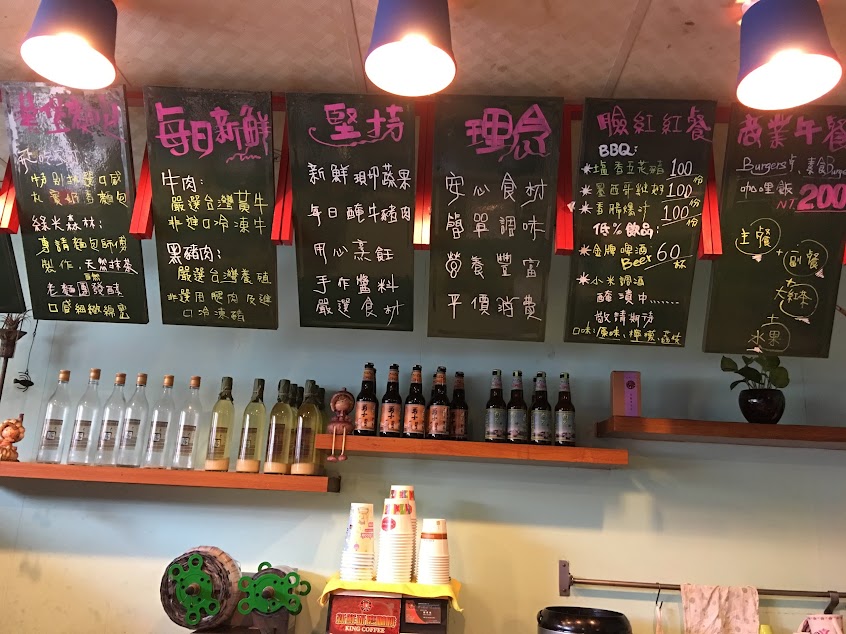 每日新鮮
牛肉:
嚴選台灣黃牛
非進口冷凍牛
黑豬肉:
嚴選台灣養殖
非選用腿肉及進
口冷凍豬
綠米森林:
專請麵包師傅
製作,天然抹茶
老麵團發酵
口感細緻綿密
堅持
新鮮現甲蔬果
每日醃牛豬肉
用心烹飪
手作醬料
嚴選食材
理念
安心食材
簡單調味
營養豐富
平價消費
臉紅紅餐
BBQ:
100份
墨西哥
100份
香腸爆汁
100份
低%飲品:
金牌啤酒
Beer
60杯
小米調酒
醃漬中......
敬請期待
口味:原味、檸檬、
商業午餐
Burgers
素食Burger
咖哩飯
NT.200
主餐
+副餐
+紅茶
+水果
KING COFFEE